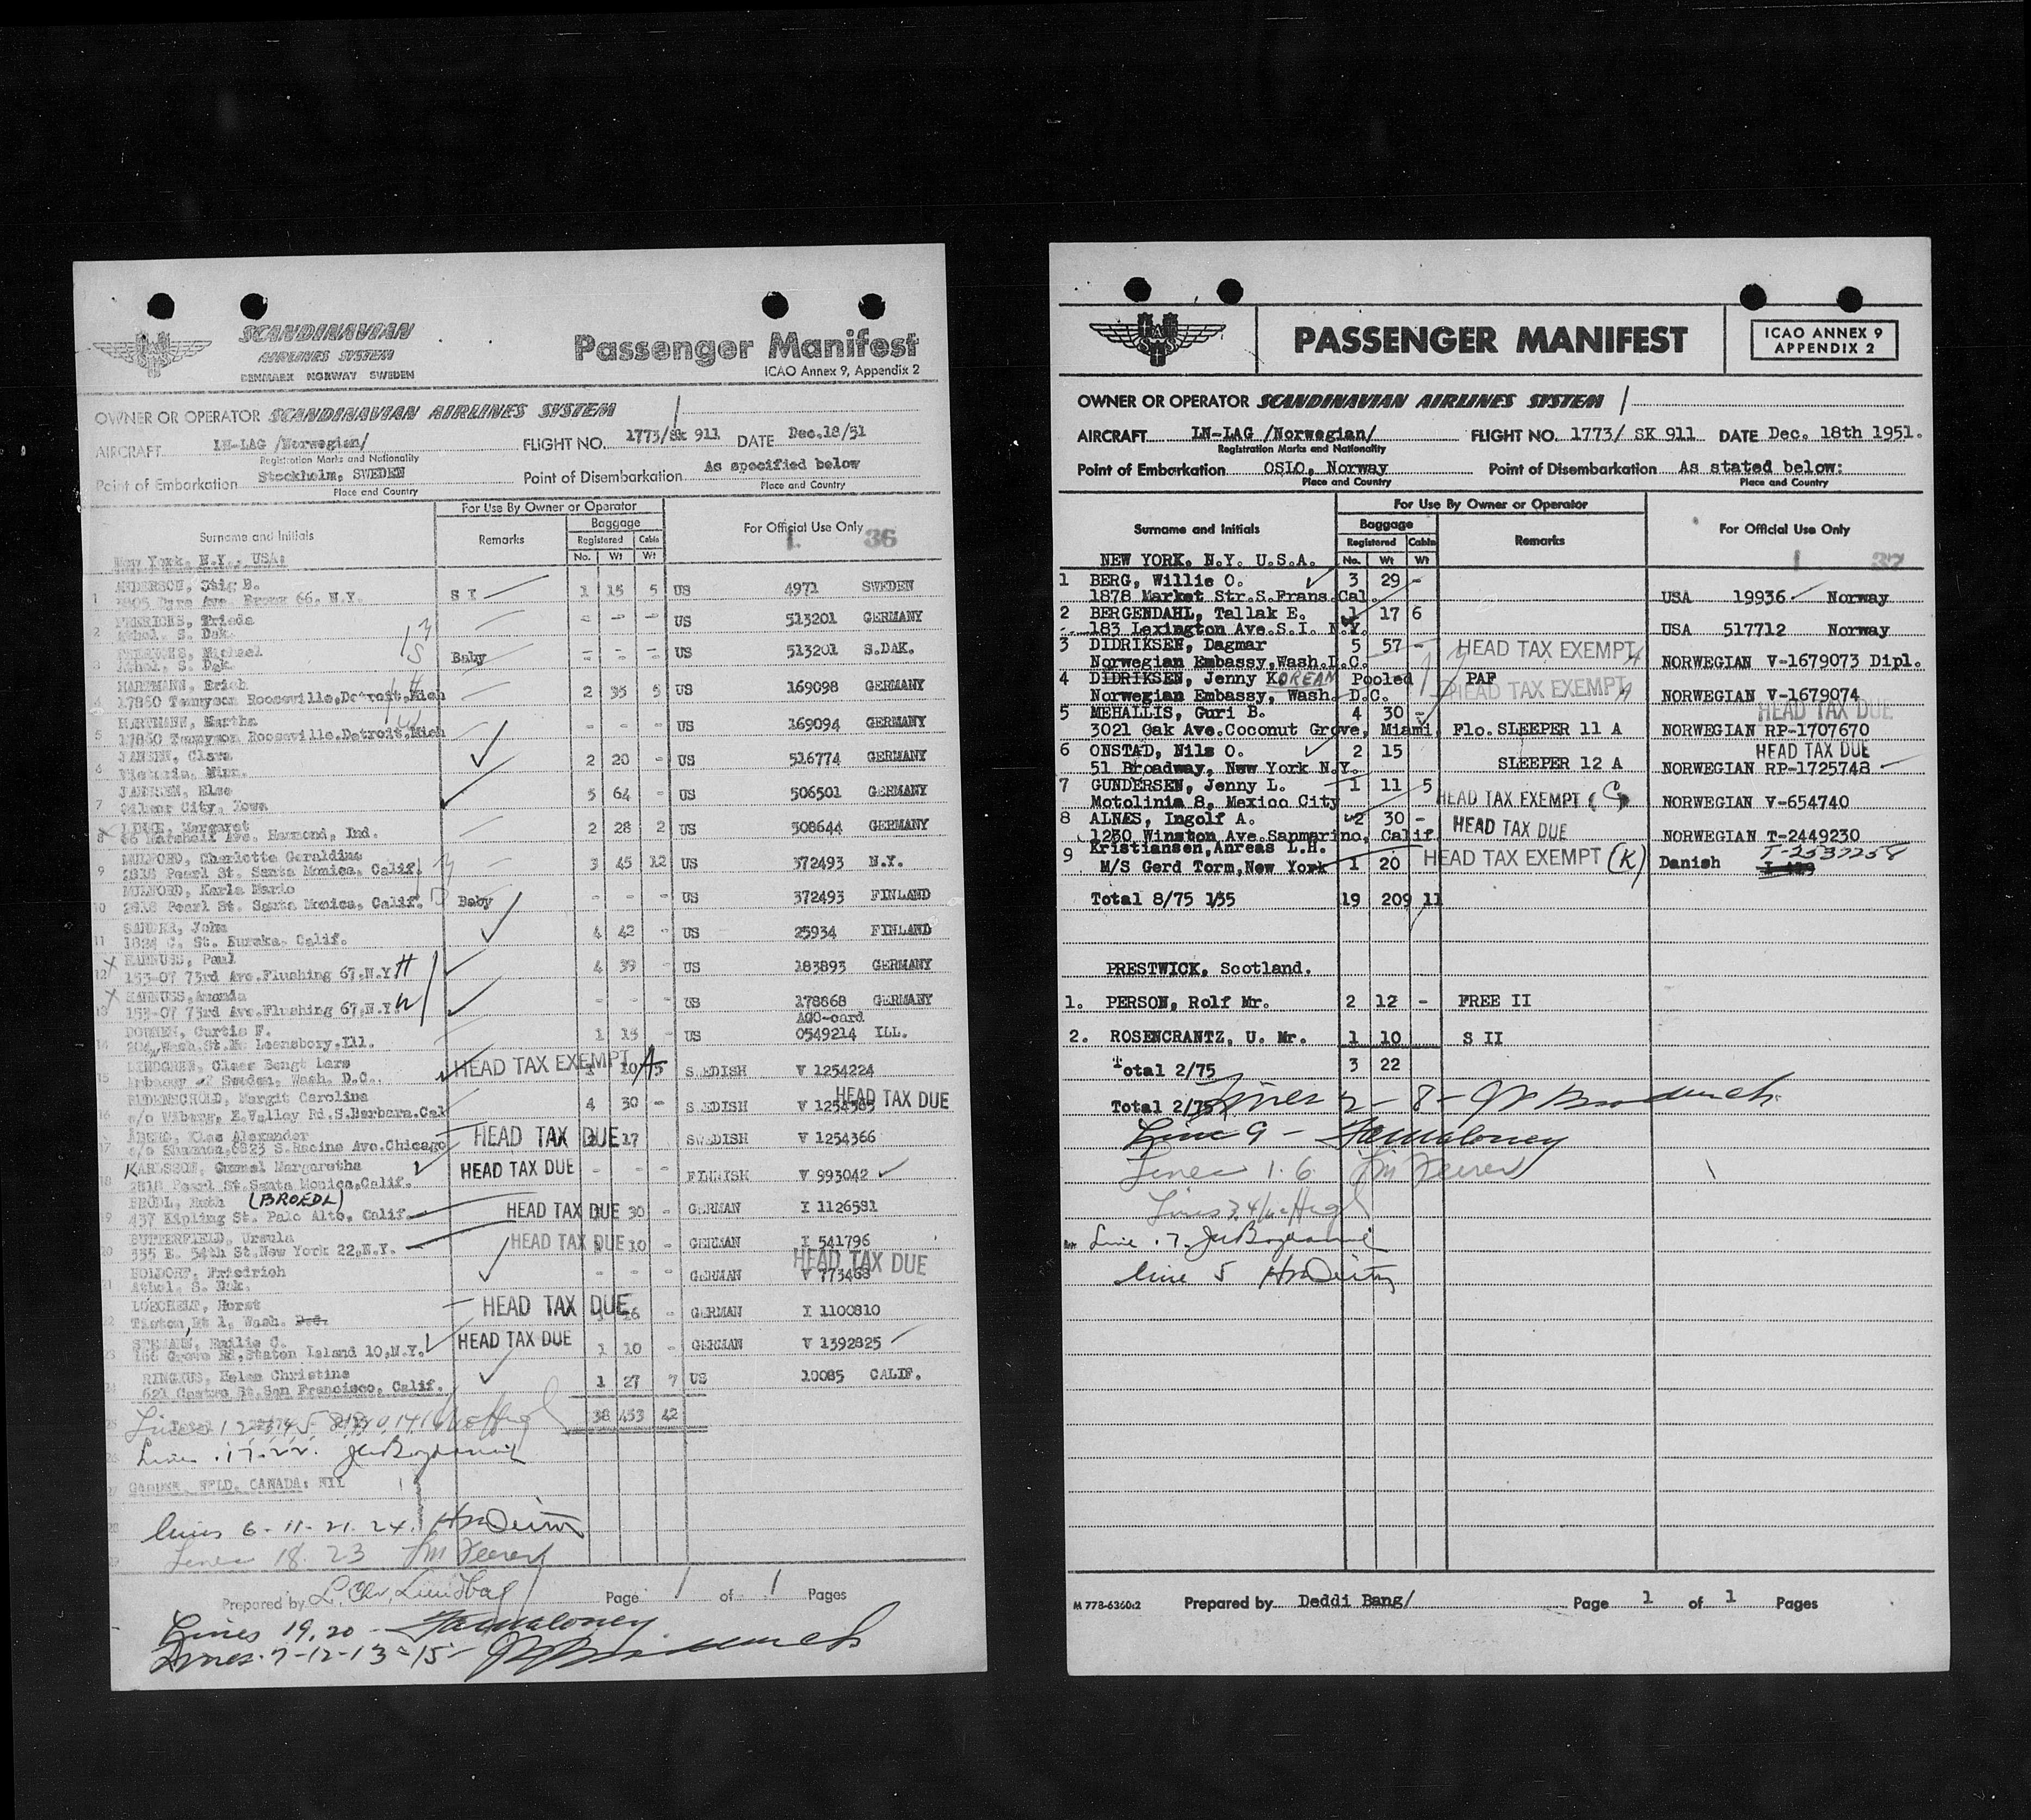 SCANDINAVIAN
AIRLINES SYSTEM
DENMARK NORWAY SWEDEN
Passenger Manifest
ICAO Annex 9, Appendix 2
OWNER OR OPERATOR SCANDINAVIAN AIRLINES SYSTEM
AIRCRAFT LN-LAG /Norwegian/ FLIGHT NO. 1773/SK 911 DATE Dec.18/51
Registration Marks and Nationality
Point of Embarkation Stockholm, SWEDEN Point of Disembarkation As specified below
Place and Country Place and Country
For Use By Owner or Operator
Surname and Initials Remarks Baggage For Official Use Only
Registered Cabin 1. 36
No. Wt Wt
New York, N.Y., USA:
1 ANDERSON, Stig B. S I 1 15 5 US 4971 SWEDEN
Ave. Bronx 66, N.Y.
2 FRERICHS, Frieda - - - US 513201 GERMANY
Athol, S. Dak.
3 FRERICHS, Michael Baby - - - US 513201 S.DAK.
Athol, S. Dak.
4 HARTMANN, Erich 2 35 5 US 169098 GERMANY
17860 Tennyson Rooseville,Detroit,Mich
5 HARTMANN, Martha - - - US 169094 GERMANY
17860 Tennyson Rooseville,Detroit,Mich
6 JANSEN, Clara 2 20 - US 516774 GERMANY
Victoria, Minn.
7 JANSSEN, Else 5 64 - US 506501 GERMANY
Silver City, Iowa
8 Margaret 2 28 2 US 508644 GERMANY
66 Marshall Ave. Hammond, Ind.
9 MULFORD, Charlotte Geraldine 3 45 12 US 372493 N.Y.
2818 Pearl St. Santa Monica, Calif.
10 MULFORD, Karla Marie Baby - - - US 372493 FINLAND
2818 Pearl St. Santa Monica, Calif.
11 SANDER, John 4 42 - US 25934 FINLAND
1824 C. St. Eureka, Calif.
12 HARNUSS, Paul 4 39 - US 183893 GERMANY
153-07 73rd Ave.Flushing 67,N.Y. H
13 HARNUSS,Amanda - - - US 178868 GERMANY
153-07 73rd Ave.Flushing 67,N.Y. W
AGO-card
14 Curtis F. 1 15 - US 0549214 ILL.
204 Wash.St.Mc Leansbory,Ill.
15 LINDGREN, Claes Bengt Lars HEAD TAX EXEMPT A 1 10 5 SWEDISH V 1254224
Embassy of Sweden, Wash. D.C.
16 RUDENSCHOLD, Margit Carolina 4 30 - SWEDISH V 1254385 HEAD TAX DUE
c/o Wiberg, E.Valley Rd.S.Barbara.Cal
17 ÅBERG, Klas Alexander HEAD TAX DUE 2 17 SWEDISH V 1254366
c/o Shannon,6823 S.Racine Ave.Chicago
18 KARLSSON, Gunnel Margaretha HEAD TAX DUE - - - FINNISH V 993042
2818 Pearl St.Santa Monica,Calif.
19 BRÖDL, Ruth (BROEDL) HEAD TAX DUE 30 - GERMAN I 1126581
437 Kipling St. Palo Alto, Calif.
20 BUTTERFIELD, Ursula HEAD TAX DUE 10 - GERMAN I 541796
335 E. 54th St.New York 22,N.Y.
HEAD TAX DUE
21 HOLDORF, Friedrich - - - GERMAN V 773468
Athol, S. Dak.
22 LOECHELT, Horst HEAD TAX DUE 1 16 - GERMAN I 1100810
Tieton,Rt 1, Wash. D.C.
23 Emilie C. HEAD TAX DUE 1 10 - GERMAN V 1392825
Grove Rd,Staten Island 10,N.Y.
24 RINGIUS, Helen Christine 1 27 7 US 10085 CALIF.
621 Castro St.San Francisco, Calif.
25 38 453 42
26 Lines . 17. 22.
27 GANDER, NFLD, CANADA: NIL
28 lines 6-11-21.24.
29 Lines 18. 23
Prepared by Page 1 of 1 Pages
Lines 19.20 - Maloney
Lines 7-12-13-15-
PASSENGER MANIFEST
ICAO ANNEX 9
APPENDIX 2
OWNER OR OPERATOR SCANDINAVIAN AIRLINES SYSTEM
AIRCRAFT LN-LAG /Norwegian/ FLIGHT NO. 1773/ SK 911 DATE Dec. 18th 1951.
Registration Marks and Nationality
Point of Embarkation OSLO, Norway Point of Disembarkation As stated below:
Place and Country Place and Country
For Use By Owner or Operator
Surname and Initials Baggage Remarks For Official Use Only
Registered Cabin 1 37
NEW YORK. N.Y. U.S.A. No. Wt Wt
1 BERG, Willie O. 3 29 -
1878 Market Str.S.Frans.Cal. USA 19936 Norway
2 BERGENDAHL, Tallak E. 1 17 6
183 Lexington Ave.S.I. N.Y. USA 517712 Norway
3 DIDRIKSEN, Dagmar 5 57 - HEAD TAX EXEMPT
Norwegian Embassy,Wash.D.C. NORWEGIAN V-1679073 Dipl.
4 DIDRIKSEN, Jenny KOREAN Pooled PAF
Norwegian Embassy, Wash. D.C. HEAD TAX EXEMPT NORWEGIAN V-1679074
5 MEHALLIS, Guri B. 4 30 - HEAD TAX DUE
3021 Oak Ave.Coconut Grove, Miami, Flo. SLEEPER 11 A NORWEGIAN RP-1707670
6 ONSTAD, Nils O. 2 15 HEAD TAX DUE
51 Broadway, New York N.Y. SLEEPER 12 A NORWEGIAN RP-1725748
7 GUNDERSEN, Jenny L. 1 11 5
Motolinia 8, Mexico City HEAD TAX EXEMPT (C) NORWEGIAN V-654740
8 ALNÆS, Ingolf A. 2 30 - HEAD TAX DUE
1250 Winston Ave.Sanmarino, Calif. NORWEGIAN T-2449230
9 Kristiansen,Anreas L.H.
M/S Gerd Torm,New York 1 20 HEAD TAX EXEMPT (K) Danish T-2537258
Total 8/75 1/35 19 209 11
PRESTWICK, Scotland.
1. PERSON, Rolf Mr. 2 12 - FREE II
2. ROSENCRANTZ, U. Mr. 1 10 S II
Total 2/75 3 22
Total 2/75 Lines 2 - 8 -
Line 9 - Maloney
Lines 1. 6.
Lines 3,4
Line . 7.
line 5
M 778-6360:2 Prepared by Deddi Bang/ Page 1 of 1 Pages